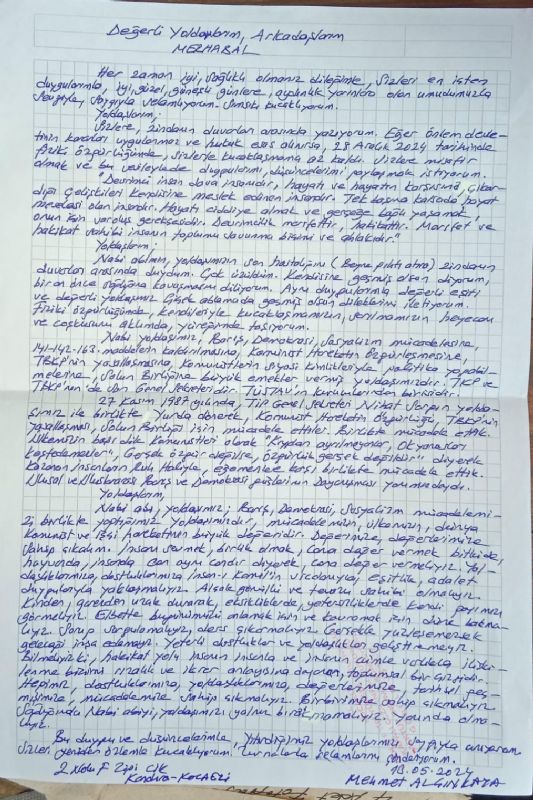 Değerli Yoldaşlarım, Arkadaşlarım
MERHABA!
Her zaman iyi, sağlıklı olmanız dileğimle, sizleri en içten
duygularımla, iyi, güzel, güneşli günlere, aydınlık yarınlara olan umudumuzla
sevgiyle, saygıyla selamlıyorum. Sımsıkı kucaklıyorum.
Yoldaşlarım;
Sizlere, zindanın duvarları arasında yazıyorum. Eğer önlem devle-
tinin kararları uygulanmaz ve hukuk esas alınırsa, 28 Aralık 2024 tarihinde
fiziki özgürlüğünde, sizlerle kucaklaşmama az kaldı. Sizlere misafir
olmak ve bu vesileylede duygularımı, düşüncelerimi paylaşmak istiyorum.
"Devrimci insan dava insanıdır, hayatı ve hayatın karşısına, çıkar-
dığı çelişkileri kendisine meslek edinen insandır. Tek başına kalsada hayat
meselesi olan insandır. Hayatı ciddiye almak ve gerçeğe bağlı yaşamak,
onun için varoluş gerekçesidir. Devrimcilik marifettir, hakikattir. Marifet ve
hakikat sahibi insanın toplumu savunma bilimi ve ahlakıdır."
Yoldaşlarım;
Nabi abimin, yoldaşımızın son hastalığını (Beyne pıhtı atma) zindanın
duvarları arasında duydum. Çok üzüldüm. Kendisine geçmiş olsun diyorum,
bir an önce sağlığına kavuşmasını diliyorum. Aynı duygularımla değerli eşiti
ve değerli yoldaşımız Çiçek ablamada geçmiş olsun dileklerimi iletiyorum.
Fiziki özgürlüğünde, kendileriyle kucaklaşmamızın, sarılmamızın heyecanı
ve coşkusunu aklımda, yüreğimde taşıyorum.
Nabi yoldaşımız, Barış, Demokrasi, Sosyalizm mücadelesine,
141-142-163. maddelerin kaldırılmasına, Komünist Hareketin özgürleşmesine,
TBKP'nin yasallaşmasına, Komünistlerin siyasi kimlikleriyle politika yapabil-
melerine, Solun Birliğine büyük emekler vermiş yoldaşımızdır. TKP ve
TBKP'nin'de son Genel Sekreteridir. TÜSTAV'ın kurucularından birisidir.
27 Kasım 1987 yılında, TİP Genel Sekreteri Nihat Sargın yolda-
şımız ile birlikte Yurda dönerek, Komünist Hareketin Özgürlüğü, TBKP'nin
yasallaşması, Solun Birliği için mücadele ettiler. Birlikte mücadele ettik.
Ülkemizin başı dik Komünistleri olarak "Kıyıdan ayrılmayanlar, Okyanusları
keşfedemezler", Gerçek özgür değilse, özgürlük gerçek değildir" diyerek
Kazanan insanların Ruh Haliyle, egemenlere karşı birlikte mücadele ettik.
Ulusal ve Uluslararası Barış ve Demokrasi güçlerinin Dayanışması yanımızdaydı.
Yoldaşlarım,
Nabi abi, yoldaşımız; Barış, Demokrasi, Sosyalizm mücadelemi-
zi birlikte yaptığımız yoldaşımızdır, mücadelemizin, ülkemizin, dünya
Komünist ve İşçi hareketinin büyük değeridir. Değerimize, değerlerimize
sahip çıkalım. İnsanı sevmek, birlik olmak, cana değer vermek bitkide,
hayvanda, insanda can aynı candır diyerek, cana değer vermeliyiz. Yol-
daşlıklarımıza, dostluklarımıza insan-ı Kamil'in vicdanıyla, eşitlik, adalet
duygularıyla yaklaşmalıyız. Alçak gönüllü ve tevazu sahibi olmalıyız.
Kinden, garezden uzak durarak, eksikliklerde, yetersizliklerde kendi payımızı
görmeliyiz. Elbette bugünümüzü anlamak için ve kavramak için düne bakma-
lıyız. Sorup sorgulamalıyız, ders çıkarmalıyız. Gerçekle yüzleşemezsek
geleceği inşa edemeyiz. Yeterli dostluklar ve yoldaşlıklar geliştiremeyiz.
Bilmeliyiz ki, hakikat yolu insanı insanla ve insanı cümle varlıkla ilişki-
lenme bilimini rızalık ve ikrar anlayışına dayanan, toplumsal bir çizgidir.
Hepimiz, dostluklarımıza, yoldaşlıklarımıza, değerlerimize, tarihsel geç-
mişimize, mücadelemize sahip çıkmalıyız. Birbirimize sahip çıkmalıyız.
Sağlığında Nabi abiyi, yoldaşımızı yalnız bırakmamalıyız. Yanında olma-
lıyız.
Bu duygu ve düşüncelerimle, yitirdiğimiz yoldaşlarımızı saygıyla anıyorum
Sizleri yeniden özlemle kucaklıyorum. Turnalarla selamlarımı gönderiyorum.
2 Nolu F Tipi CİK
Kandıra-KOCAELİ
18.05.2024
Mehmet ALGINKAYA